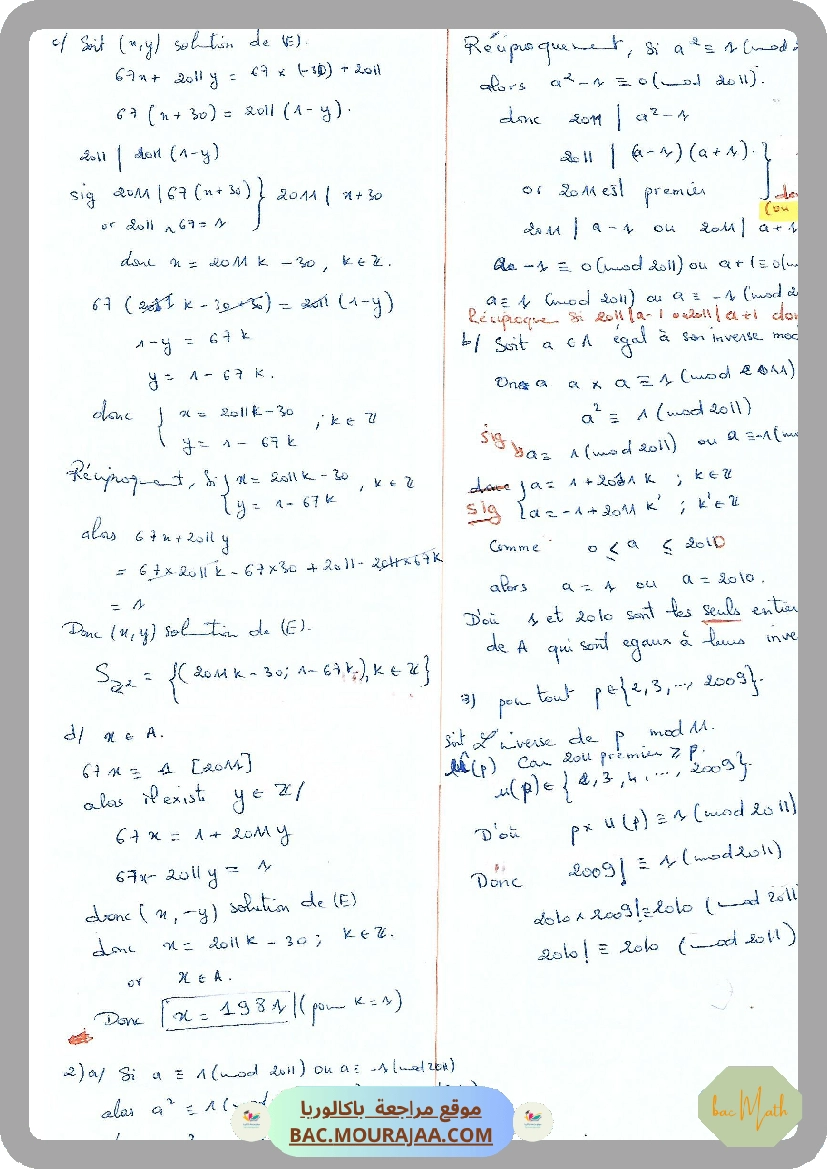 c/ Soit (x,y) solution de (E).
67x + 2011y = 67 × (-30) + 2011
67 (x + 30) = 2011 (1 - y).
2011 | 2011 (1-y)
sig 2011 | 67 (x+30) } 2011 | x+30
or 2011 ∧ 67 = 1
donc x = 2011 k - 30, k ∈ Z.
67 (2011 k - 30 + 30) = 2011 (1-y)
1-y = 67 k
y = 1 - 67 k.
donc { x = 2011k - 30
y = 1 - 67k ; k ∈ Z
Réciproquent, Si { x = 2011k - 30
y = 1 - 67k , k ∈ Z
alors 67x + 2011y
= 67×2011k - 67×30 + 2011 - 2011×67k
= 1
Donc (x,y) solution de (E).
S_Z² = {(2011k - 30; 1 - 67k), k ∈ Z}
d/ x ∈ A.
67x ≡ 1 [2011]
alors il existe y ∈ Z /
67x = 1 + 2011y
67x - 2011y = 1
donc (x, -y) solution de (E)
donc x = 2011k - 30 ; k ∈ Z.
or x ∈ A.
Donc x = 1981 (pour k = 1)
2) a/ Si a ≡ 1 (mod 2011) ou a ≡ -1 (mod 2011)
alors a² ≡ 1 (mod
Réciproquement, Si a² ≡ 1 (mod 2
alors a² - 1 ≡ 0 (mod 2011).
donc 2011 | a² - 1
2011 | (a-1)(a+1). }
or 2011 est premier
(ou
2011 | a-1 ou 2011 | a+1
a - 1 ≡ 0 (mod 2011) ou a+1 ≡ 0 (m
a ≡ 1 (mod 2011) ou a ≡ -1 (mod 2
Réciproque Si 2011 | a-1 ou 2011 | a+1 don
b/ Soit a ∈ A égal à son inverse mod
On a a × a ≡ 1 (mod 2011)
a² ≡ 1 (mod 2011)
sig a ≡ 1 (mod 2011) ou a ≡ -1 (m
donc { a = 1 + 2011 k ; k ∈ Z
sig a = -1 + 2011 k' ; k' ∈ Z
Comme 0 ≤ a ≤ 2010
alors a = 1 ou a = 2010.
D'où 1 et 2010 sont les seuls entie
de A qui sont egaux à leurs inve
3) pour tout p ∈ {2, 3, ..., 2009}.
Soit L'inverse de p mod 11.
u(p) Car 2011 premier ≥ p.
u(p) ∈ {2, 3, 4, ..., 2009}.
D'où p × u(p) ≡ 1 (mod 2011)
Donc 2009! ≡ 1 (mod 2011)
2010 × 2009! ≡ 2010 (mod 2011
2010! ≡ 2010 (mod 2011)
موقع مراجعة باكالوريا
BAC.MOURAJAA.COM
bac Math